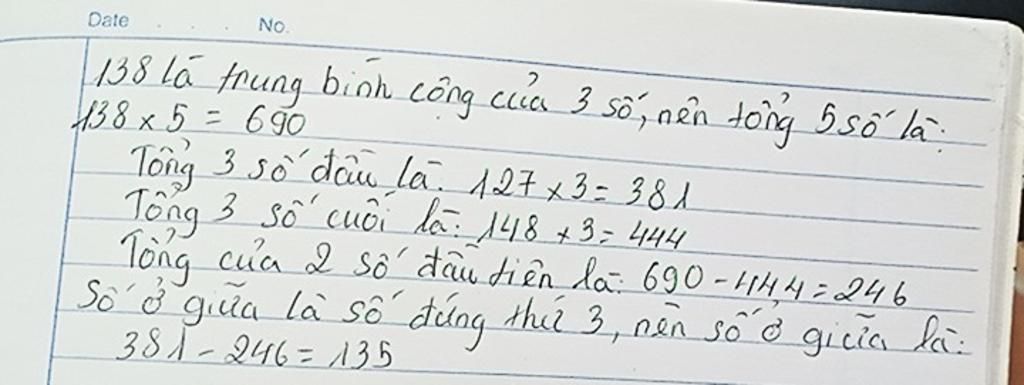 Date . . . No.
138 là trung bình cộng của 3 số, nên tổng 5 số là:
138 x 5 = 690
Tổng 3 số đầu là: 127 x 3 = 381
Tổng 3 số cuối là: 148 x 3 = 444
Tổng của 2 số đầu tiên là: 690 - 444 = 246
Số ở giữa là số đứng thứ 3, nên số ở giữa là:
381 - 246 = 135